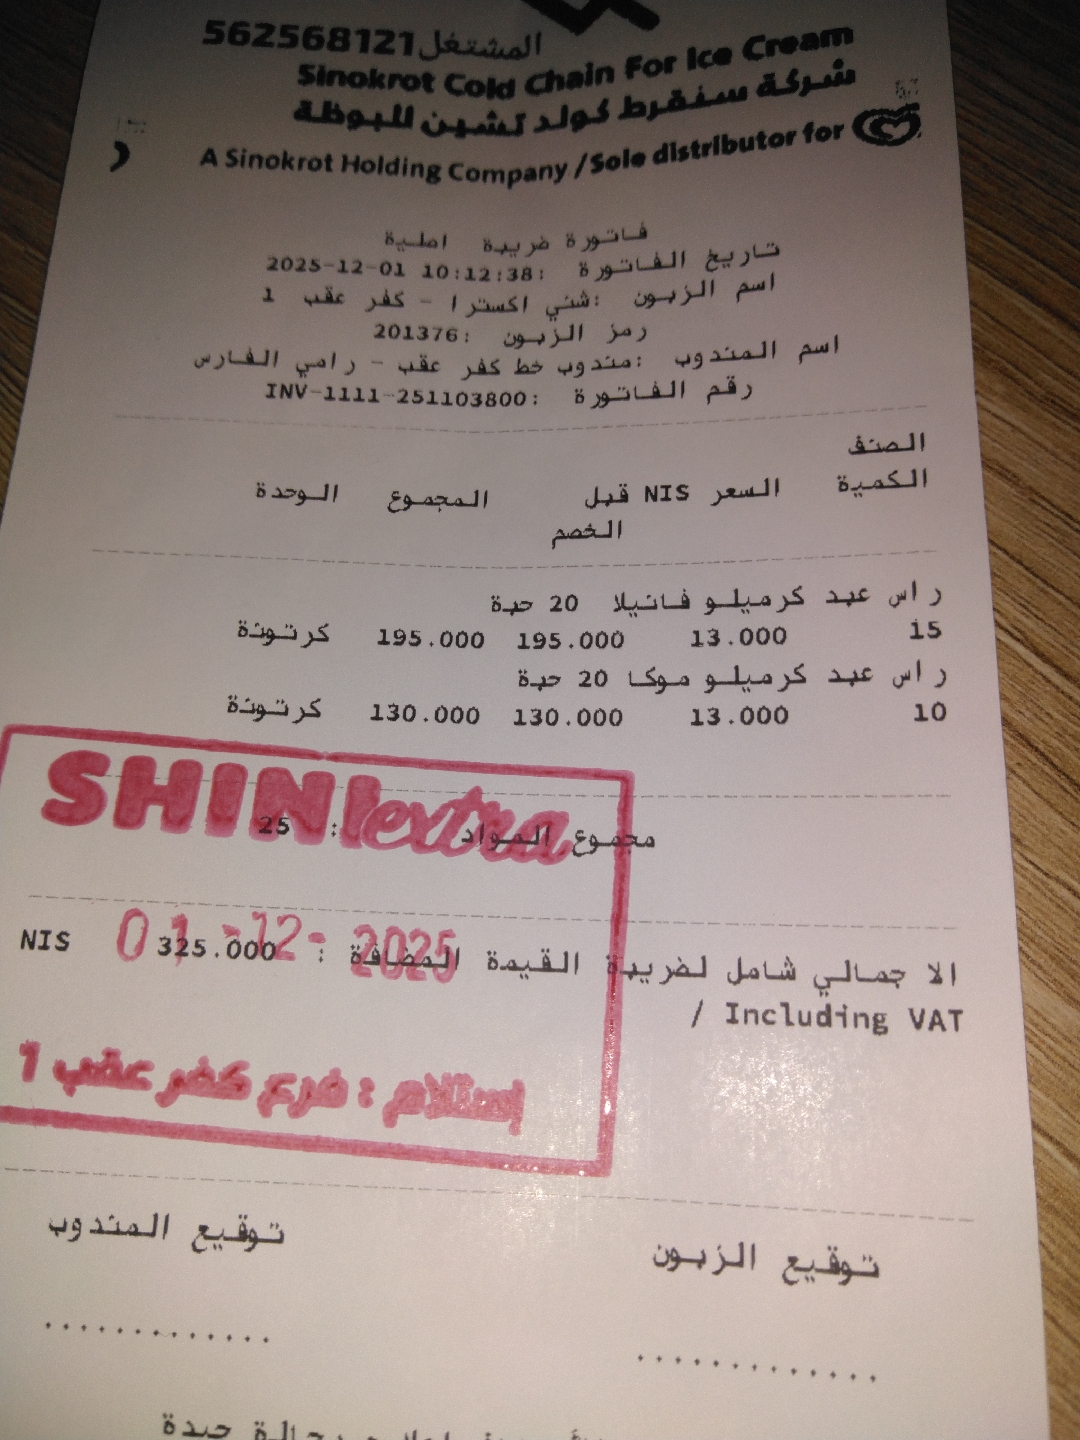 562568121 المشتغل
Sinokrot Cold Chain For Ice Cream
شركة سنقرط كولد تشين للبوظة
A Sinokrot Holding Company / Sole distributor for
فاتورة ضريبة اصلية
تاريخ الفاتورة : 2025-12-01 10:12:38
اسم الزبون : شني اكسترا - كفر عقب 1
رمز الزبون : 201376
اسم المندوب : مندوب خط كفر عقب - رامي الفارس
رقم الفاتورة : INV-1111-251103800
الصنف
الكمية السعر NIS قبل المجموع الوحدة
الخصم
راس عبد كرميلو فانيلا 20 حبة
15 13.000 195.000 195.000 كرتونة
راس عبد كرميلو موكا 20 حبة
10 13.000 130.000 130.000 كرتونة
SHINI extra
مجموع المواد : 25
01-12-2025
الاجمالي شامل لضريبة القيمة المضافة : 325.000 NIS
/ Including VAT
إستلام : فرع كفر عقب 1
توقيع الزبون توقيع المندوب
............. .............